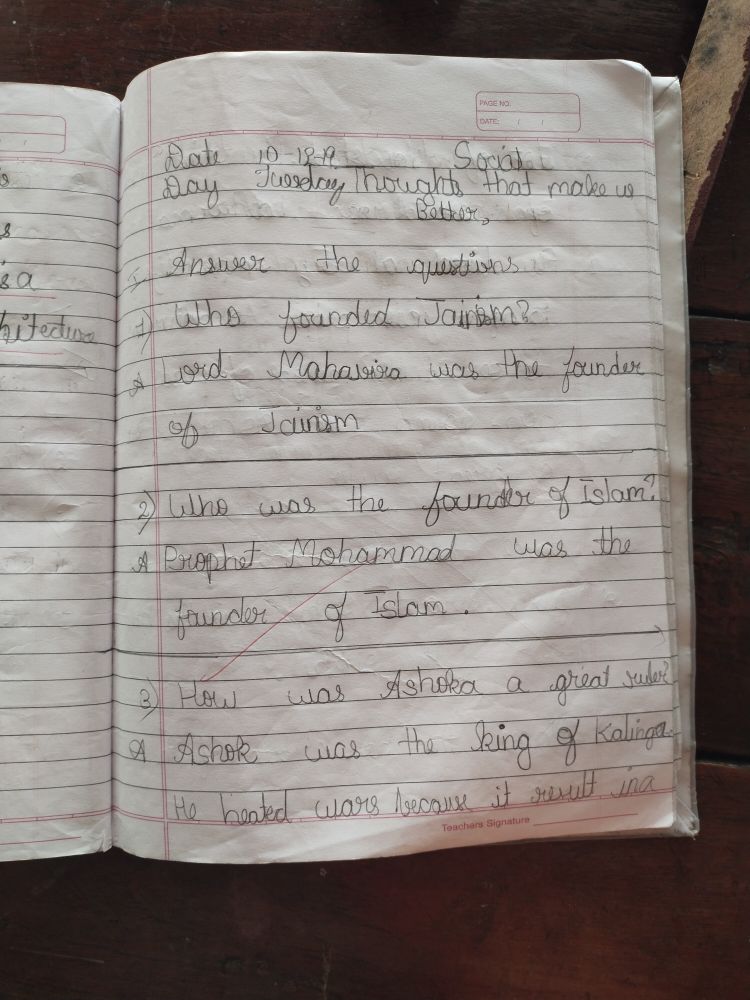 s
s
s a
hitecture
PAGE NO.
DATE: / /
Date 10-12-19 Social
Day Tuesday Thoughts that make us
Better,
I, Answer the questions
1) Who founded Jainism?
A Lord Mahavira was the founder
of Jainism
2) Who was the founder of Islam?
A Prophet Mohammad was the
founder of Islam.
3) How was Ashoka a great ruler?
A Ashok was the king of Kalinga.
He heated wars because it result in a
Teachers Signature